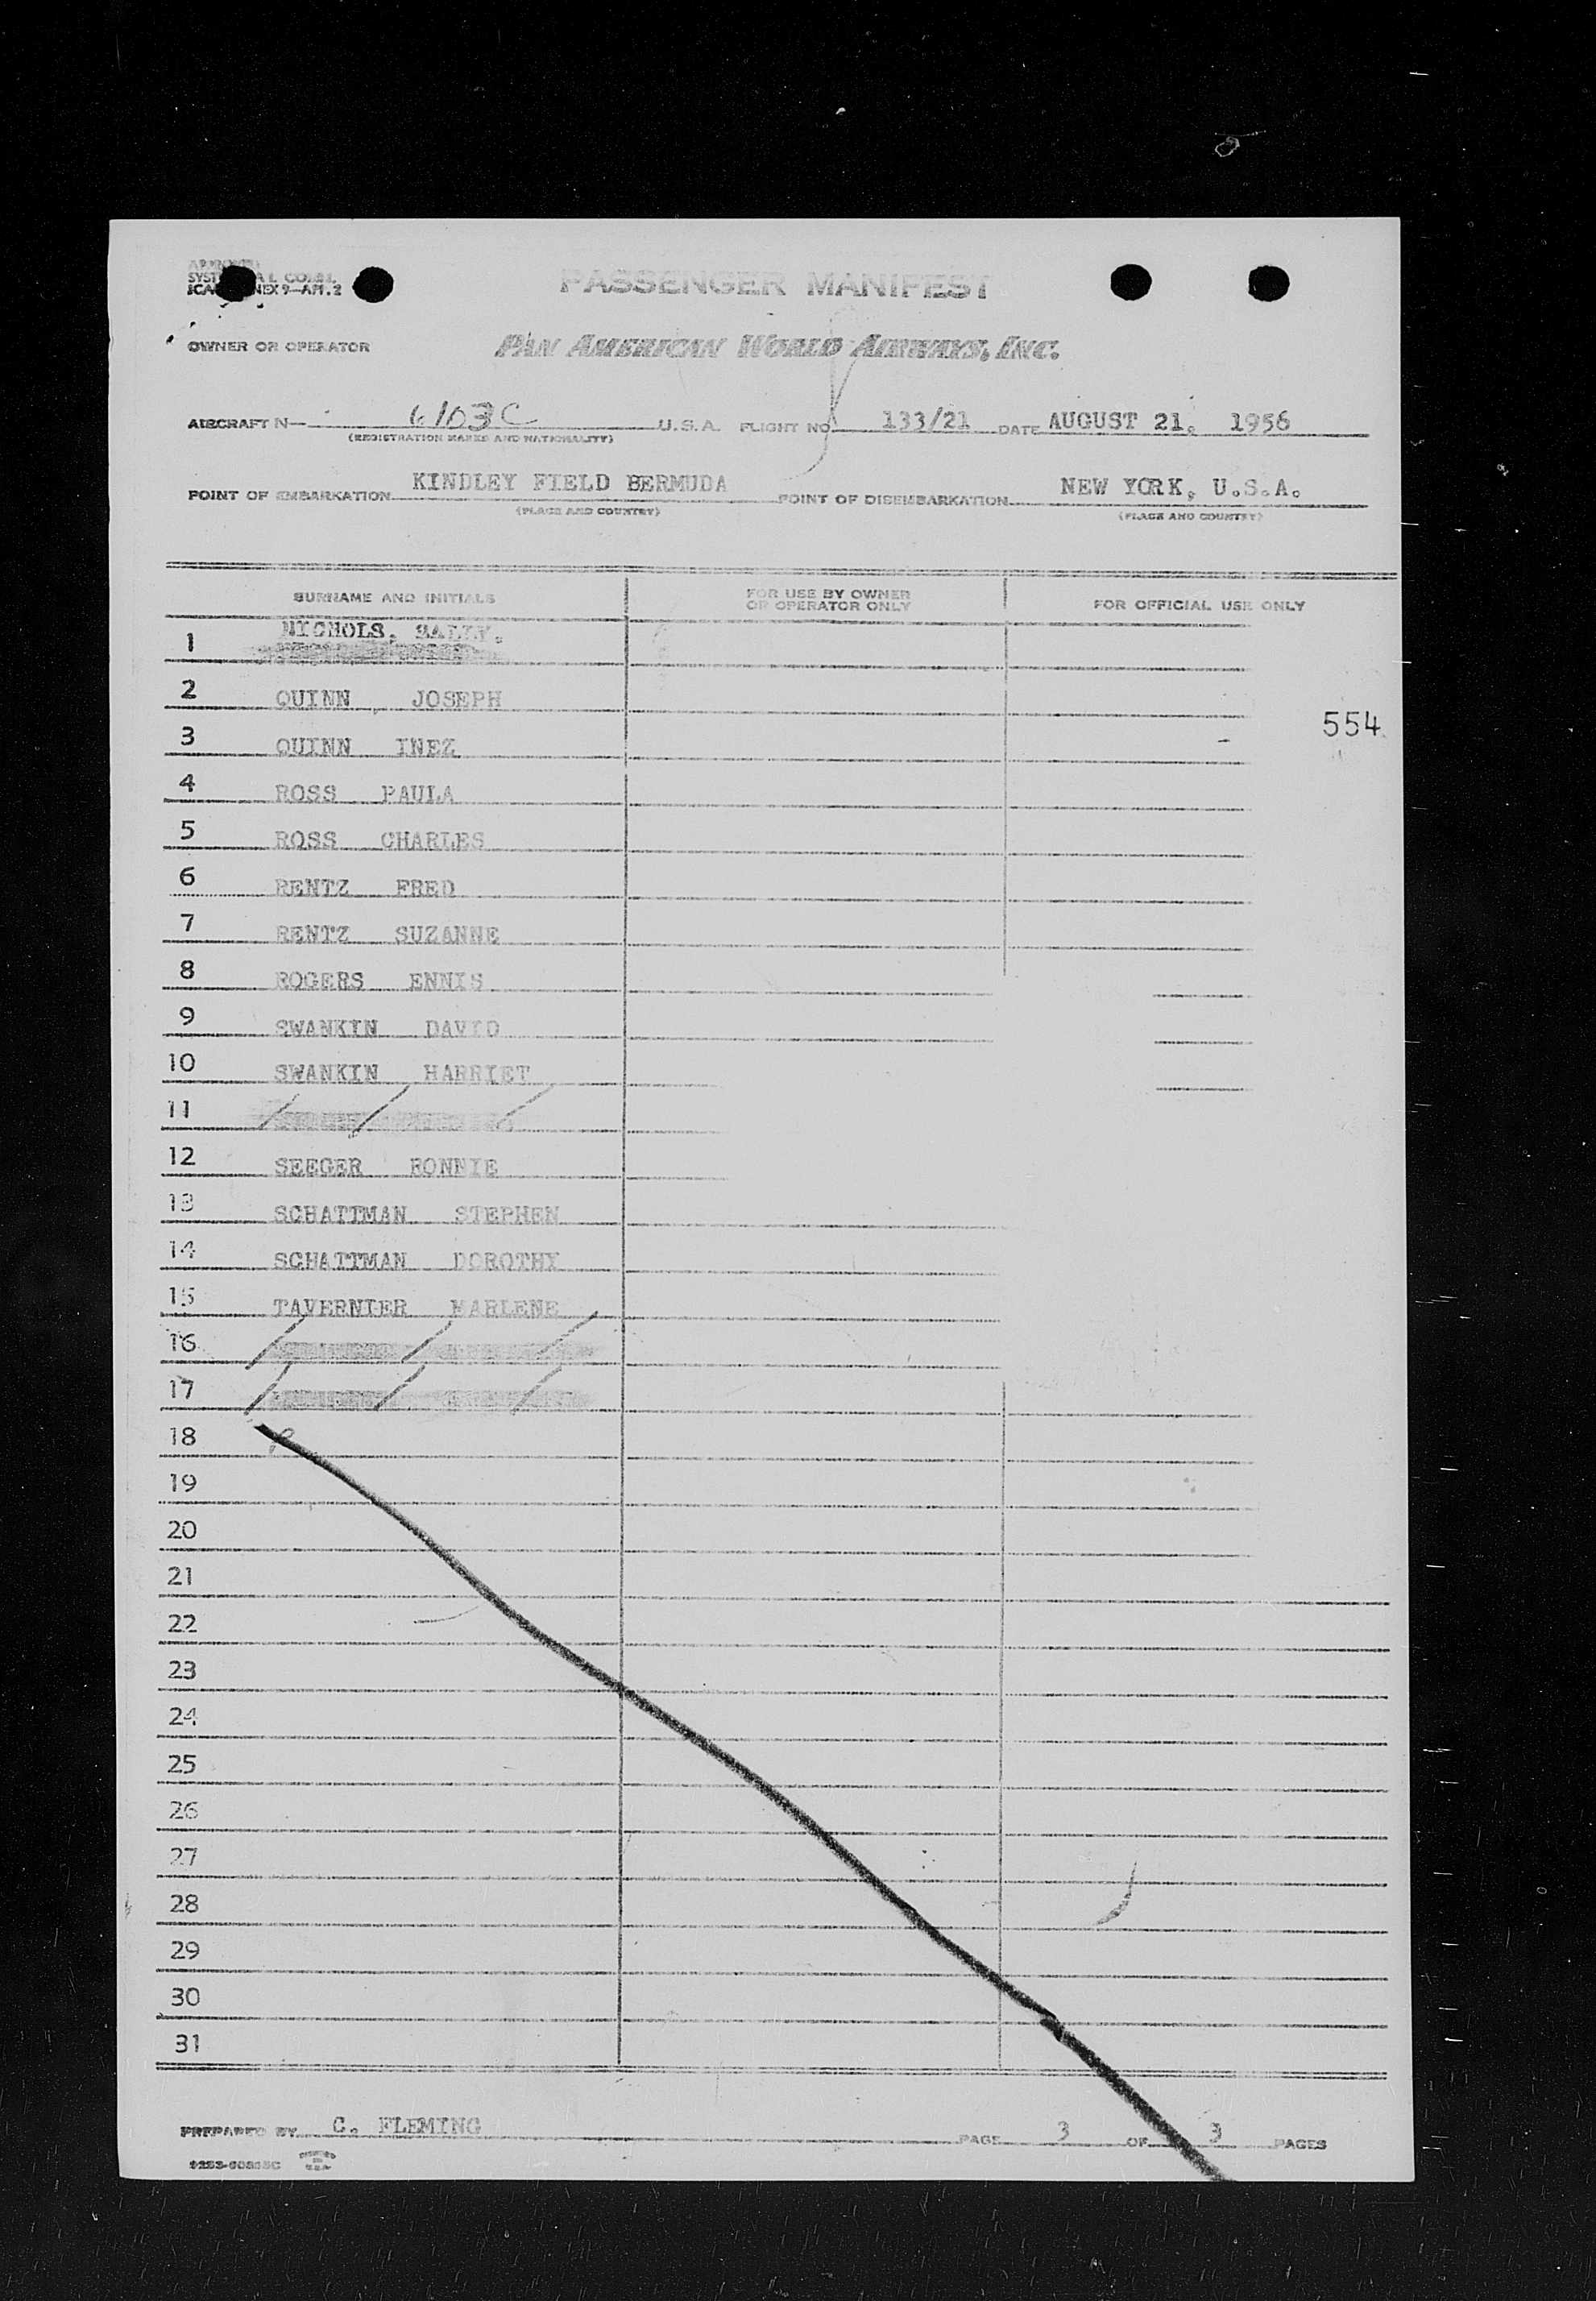 PASSENGER MANIFEST
ICAO ANNEX 9—APP. 2
OWNER OR OPERATOR PAN AMERICAN WORLD AIRWAYS, INC.
AIRCRAFT N— 6103C U.S.A. FLIGHT NO 133/21 DATE AUGUST 21, 1956
(REGISTRATION MARKS AND NATIONALITY)
POINT OF EMBARKATION KINDLEY FIELD BERMUDA POINT OF DISEMBARKATION NEW YORK, U.S.A.
(PLACE AND COUNTRY) (PLACE AND COUNTRY)
SURNAME AND INITIALS FOR USE BY OWNER OR OPERATOR ONLY FOR OFFICIAL USE ONLY
1 NICHOLS, SALLY.
2 QUINN, JOSEPH
554
3 QUINN INEZ
4 ROSS PAULA
5 ROSS CHARLES
6 RENTZ FRED
7 RENTZ SUZANNE
8 ROGERS ENNIS
9 SWANKIN DAVID
10 SWANKIN HARRIET
11
12 SEEGER RONNIE
13 SCHATTMAN STEPHEN
14 SCHATTMAN DOROTHY
15 TAVERNIER MARLENE
16
17
18
19
20
21
22
23
24
25
26
27
28
29
30
31
PREPARED BY C. FLEMING PAGE 3 OF 3 PAGES